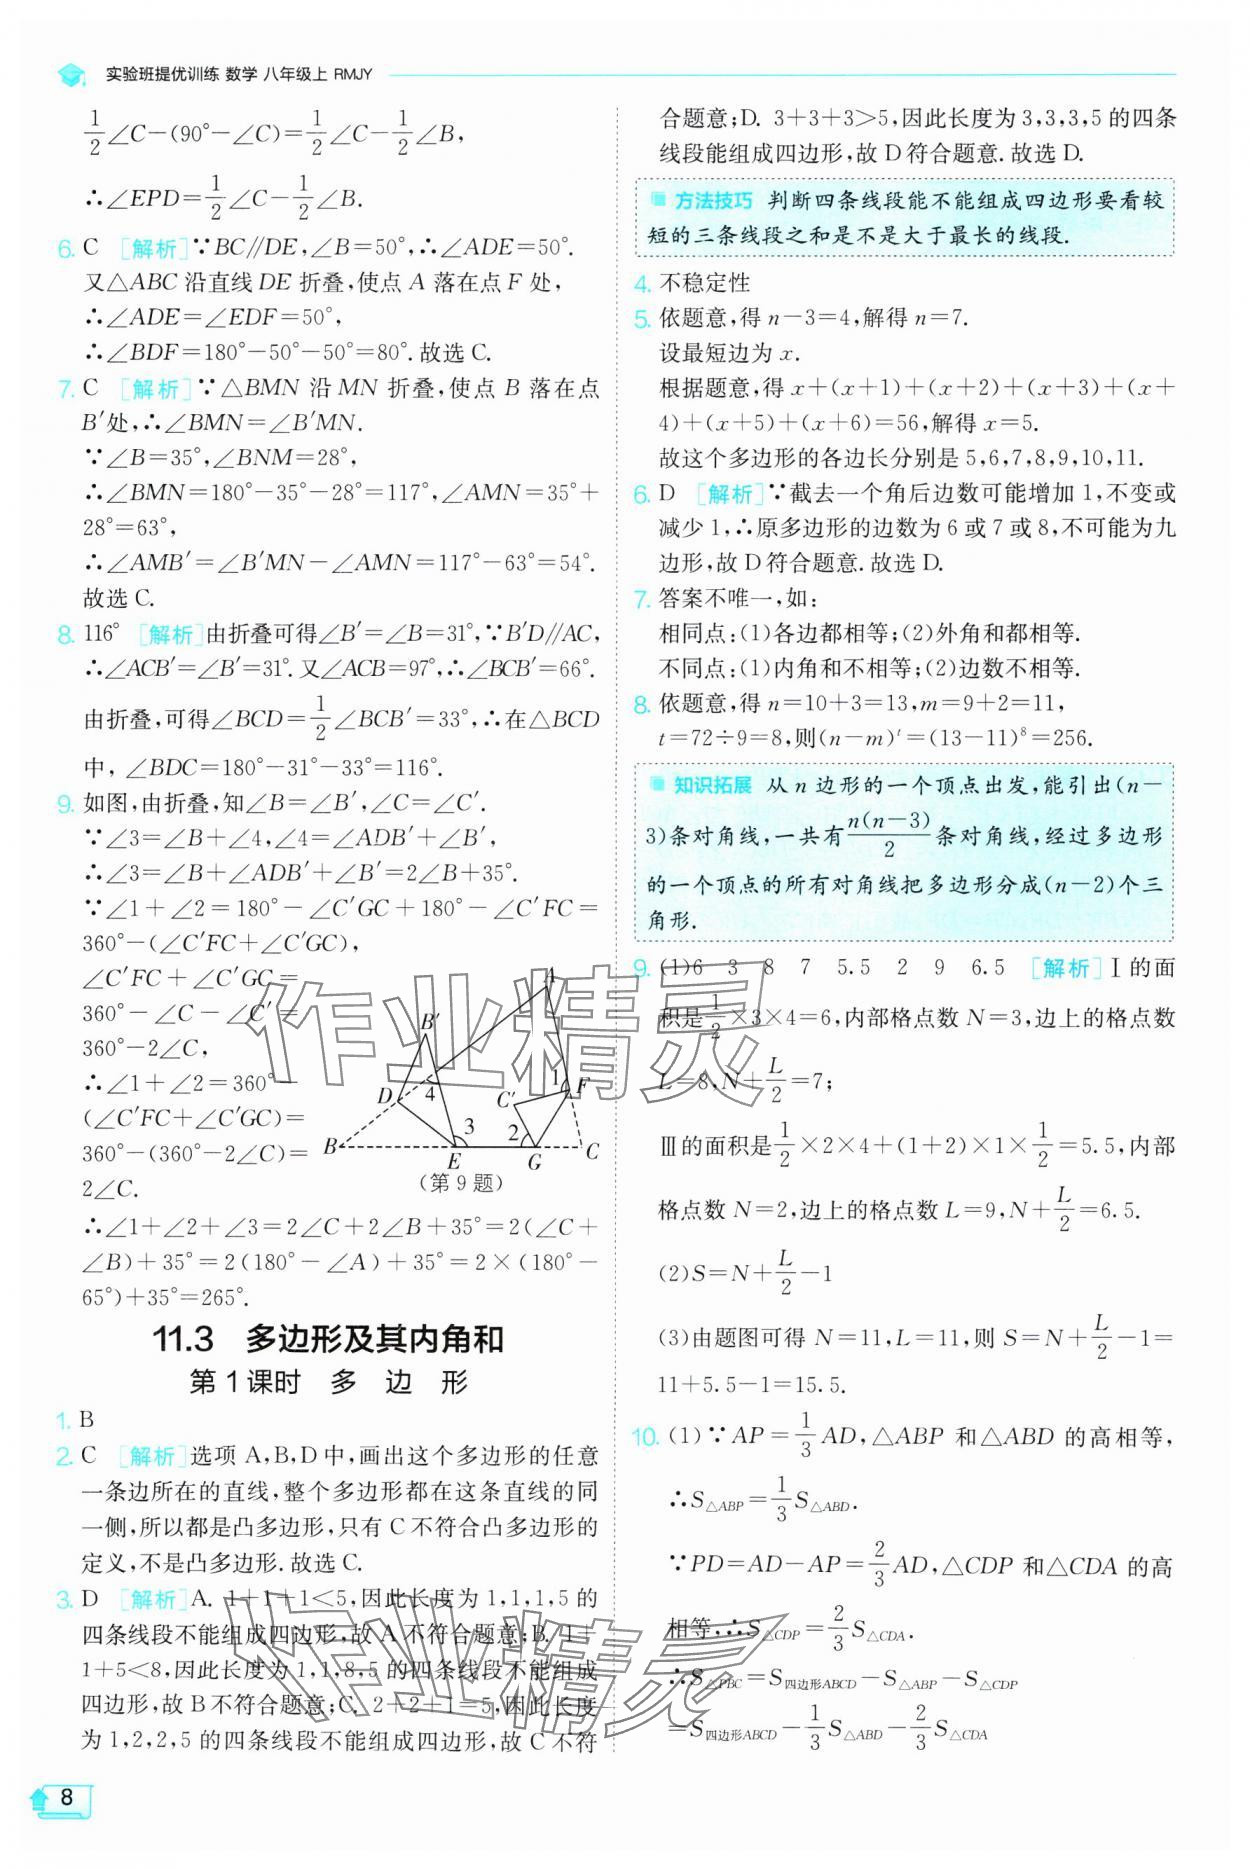 实验班提优训练 数学 八年级上 RMJY
1/2∠C−(90°−∠C)=1/2∠C−1/2∠B,
∴∠EPD=1/2∠C−1/2∠B.
6. C [解析]∵BC∥DE,∠B=50°,∴∠ADE=50°.
又△ABC 沿直线 DE 折叠,使点 A 落在点 F 处,
∴∠ADE=∠EDF=50°,
∴∠BDF=180°−50°−50°=80°.故选 C.
7. C [解析]∵△BMN 沿 MN 折叠,使点 B 落在点
B′处,∴∠BMN=∠B′MN.
∵∠B=35°,∠BNM=28°,
∴∠BMN=180°−35°−28°=117°,∠AMN=35°+
28°=63°,
∴∠AMB′=∠B′MN−∠AMN=117°−63°=54°.
故选 C.
8. 116° [解析]由折叠可得∠B′=∠B=31°,∵B′D∥AC,
∴∠ACB′=∠B′=31°.又∠ACB=97°,∴∠BCB′=66°.
由折叠,可得∠BCD=1/2∠BCB′=33°,∴在△BCD
中,∠BDC=180°−31°−33°=116°.
9. 如图,由折叠,知∠B=∠B′,∠C=∠C′.
∵∠3=∠B+∠4,∠4=∠ADB′+∠B′,
∴∠3=∠B+∠ADB′+∠B′=2∠B+35°.
∵∠1+∠2=180°−∠C′GC+180°−∠C′FC=
360°−(∠C′FC+∠C′GC),
∠C′FC+∠C′GC=
360°−∠C−∠C′=
360°−2∠C,
∴∠1+∠2=360°−
(∠C′FC+∠C′GC)=
360°−(360°−2∠C)=
2∠C.
A
B′
1
F
D
4
C′
3
2
B
E
G
C
(第 9 题)
∴∠1+∠2+∠3=2∠C+2∠B+35°=2(∠C+
∠B)+35°=2(180°−∠A)+35°=2×(180°−
65°)+35°=265°.
11.3 多边形及其内角和
第 1 课时 多 边 形
1. B
2. C [解析]选项 A,B,D 中,画出这个多边形的任意
一条边所在的直线,整个多边形都在这条直线的同
一侧,所以都是凸多边形,只有 C 不符合凸多边形的
定义,不是凸多边形.故选 C.
3. D [解析]A. 1+1+1<5,因此长度为 1,1,1,5 的
四条线段不能组成四边形,故 A 不符合题意;B. 1+
1+5<8,因此长度为 1,1,8,5 的四条线段不能组成
四边形,故 B 不符合题意;C. 2+2+1=5,因此长度
为 1,2,2,5 的四条线段不能组成四边形,故 C 不符
合题意;D. 3+3+3>5,因此长度为 3,3,3,5 的四条
线段能组成四边形,故 D 符合题意.故选 D.
方法技巧 判断四条线段能不能组成四边形要看较
短的三条线段之和是不是大于最长的线段.
4. 不稳定性
5. 依题意,得 n−3=4,解得 n=7.
设最短边为 x.
根据题意,得 x+(x+1)+(x+2)+(x+3)+(x+
4)+(x+5)+(x+6)=56,解得 x=5.
故这个多边形的各边长分别是 5,6,7,8,9,10,11.
6. D [解析]∵截去一个角后边数可能增加 1,不变或
减少 1,∴原多边形的边数为 6 或 7 或 8,不可能为九
边形,故 D 符合题意.故选 D.
7. 答案不唯一,如:
相同点:(1)各边都相等;(2)外角和都相等.
不同点:(1)内角和不相等;(2)边数不相等.
8. 依题意,得 n=10+3=13,m=9+2=11,
t=72÷9=8,则(n−m)ᵗ=(13−11)⁸=256.
知识拓展 从 n 边形的一个顶点出发,能引出(n−
3)条对角线,一共有n(n−3)/2条对角线,经过多边形
的一个顶点的所有对角线把多边形分成(n−2)个三
角形.
9. (1)6 3 8 7 5.5 2 9 6.5 [解析]Ⅰ的面
积是1/2×3×4=6,内部格点数 N=3,边上的格点数
L=8,N+L/2=7;
Ⅲ的面积是1/2×2×4+(1+2)×1×1/2=5.5,内部
格点数 N=2,边上的格点数 L=9,N+L/2=6.5.
(2)S=N+L/2−1
(3)由题图可得 N=11,L=11,则 S=N+L/2−1=
11+5.5−1=15.5.
10. (1)∵AP=1/3AD,△ABP 和△ABD 的高相等,
∴S△ABP=1/3S△ABD.
∵PD=AD−AP=2/3AD,△CDP 和△CDA 的高
相等,∴S△CDP=2/3S△CDA.
∴S△PBC=S四边形ABCD−S△ABP−S△CDP
=S四边形ABCD−1/3S△ABD−2/3S△CDA
8
作业精灵
作业精灵